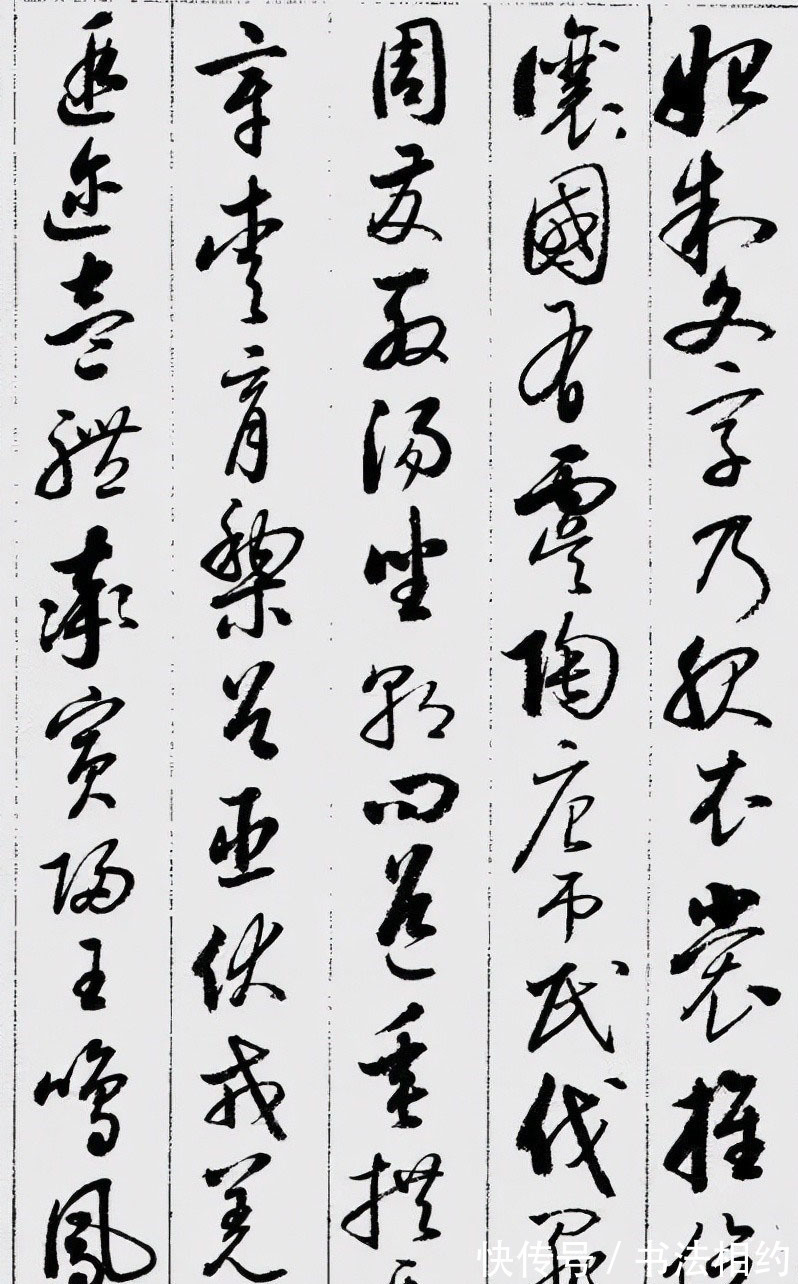 始制文字乃服衣裳推位
讓國有虞陶唐吊民伐罪
周發殷湯坐朝問道垂拱
章愛育黎首臣伏戎羌
遐邇壹體率賓歸王鳴鳳
快传号 / 书法相约